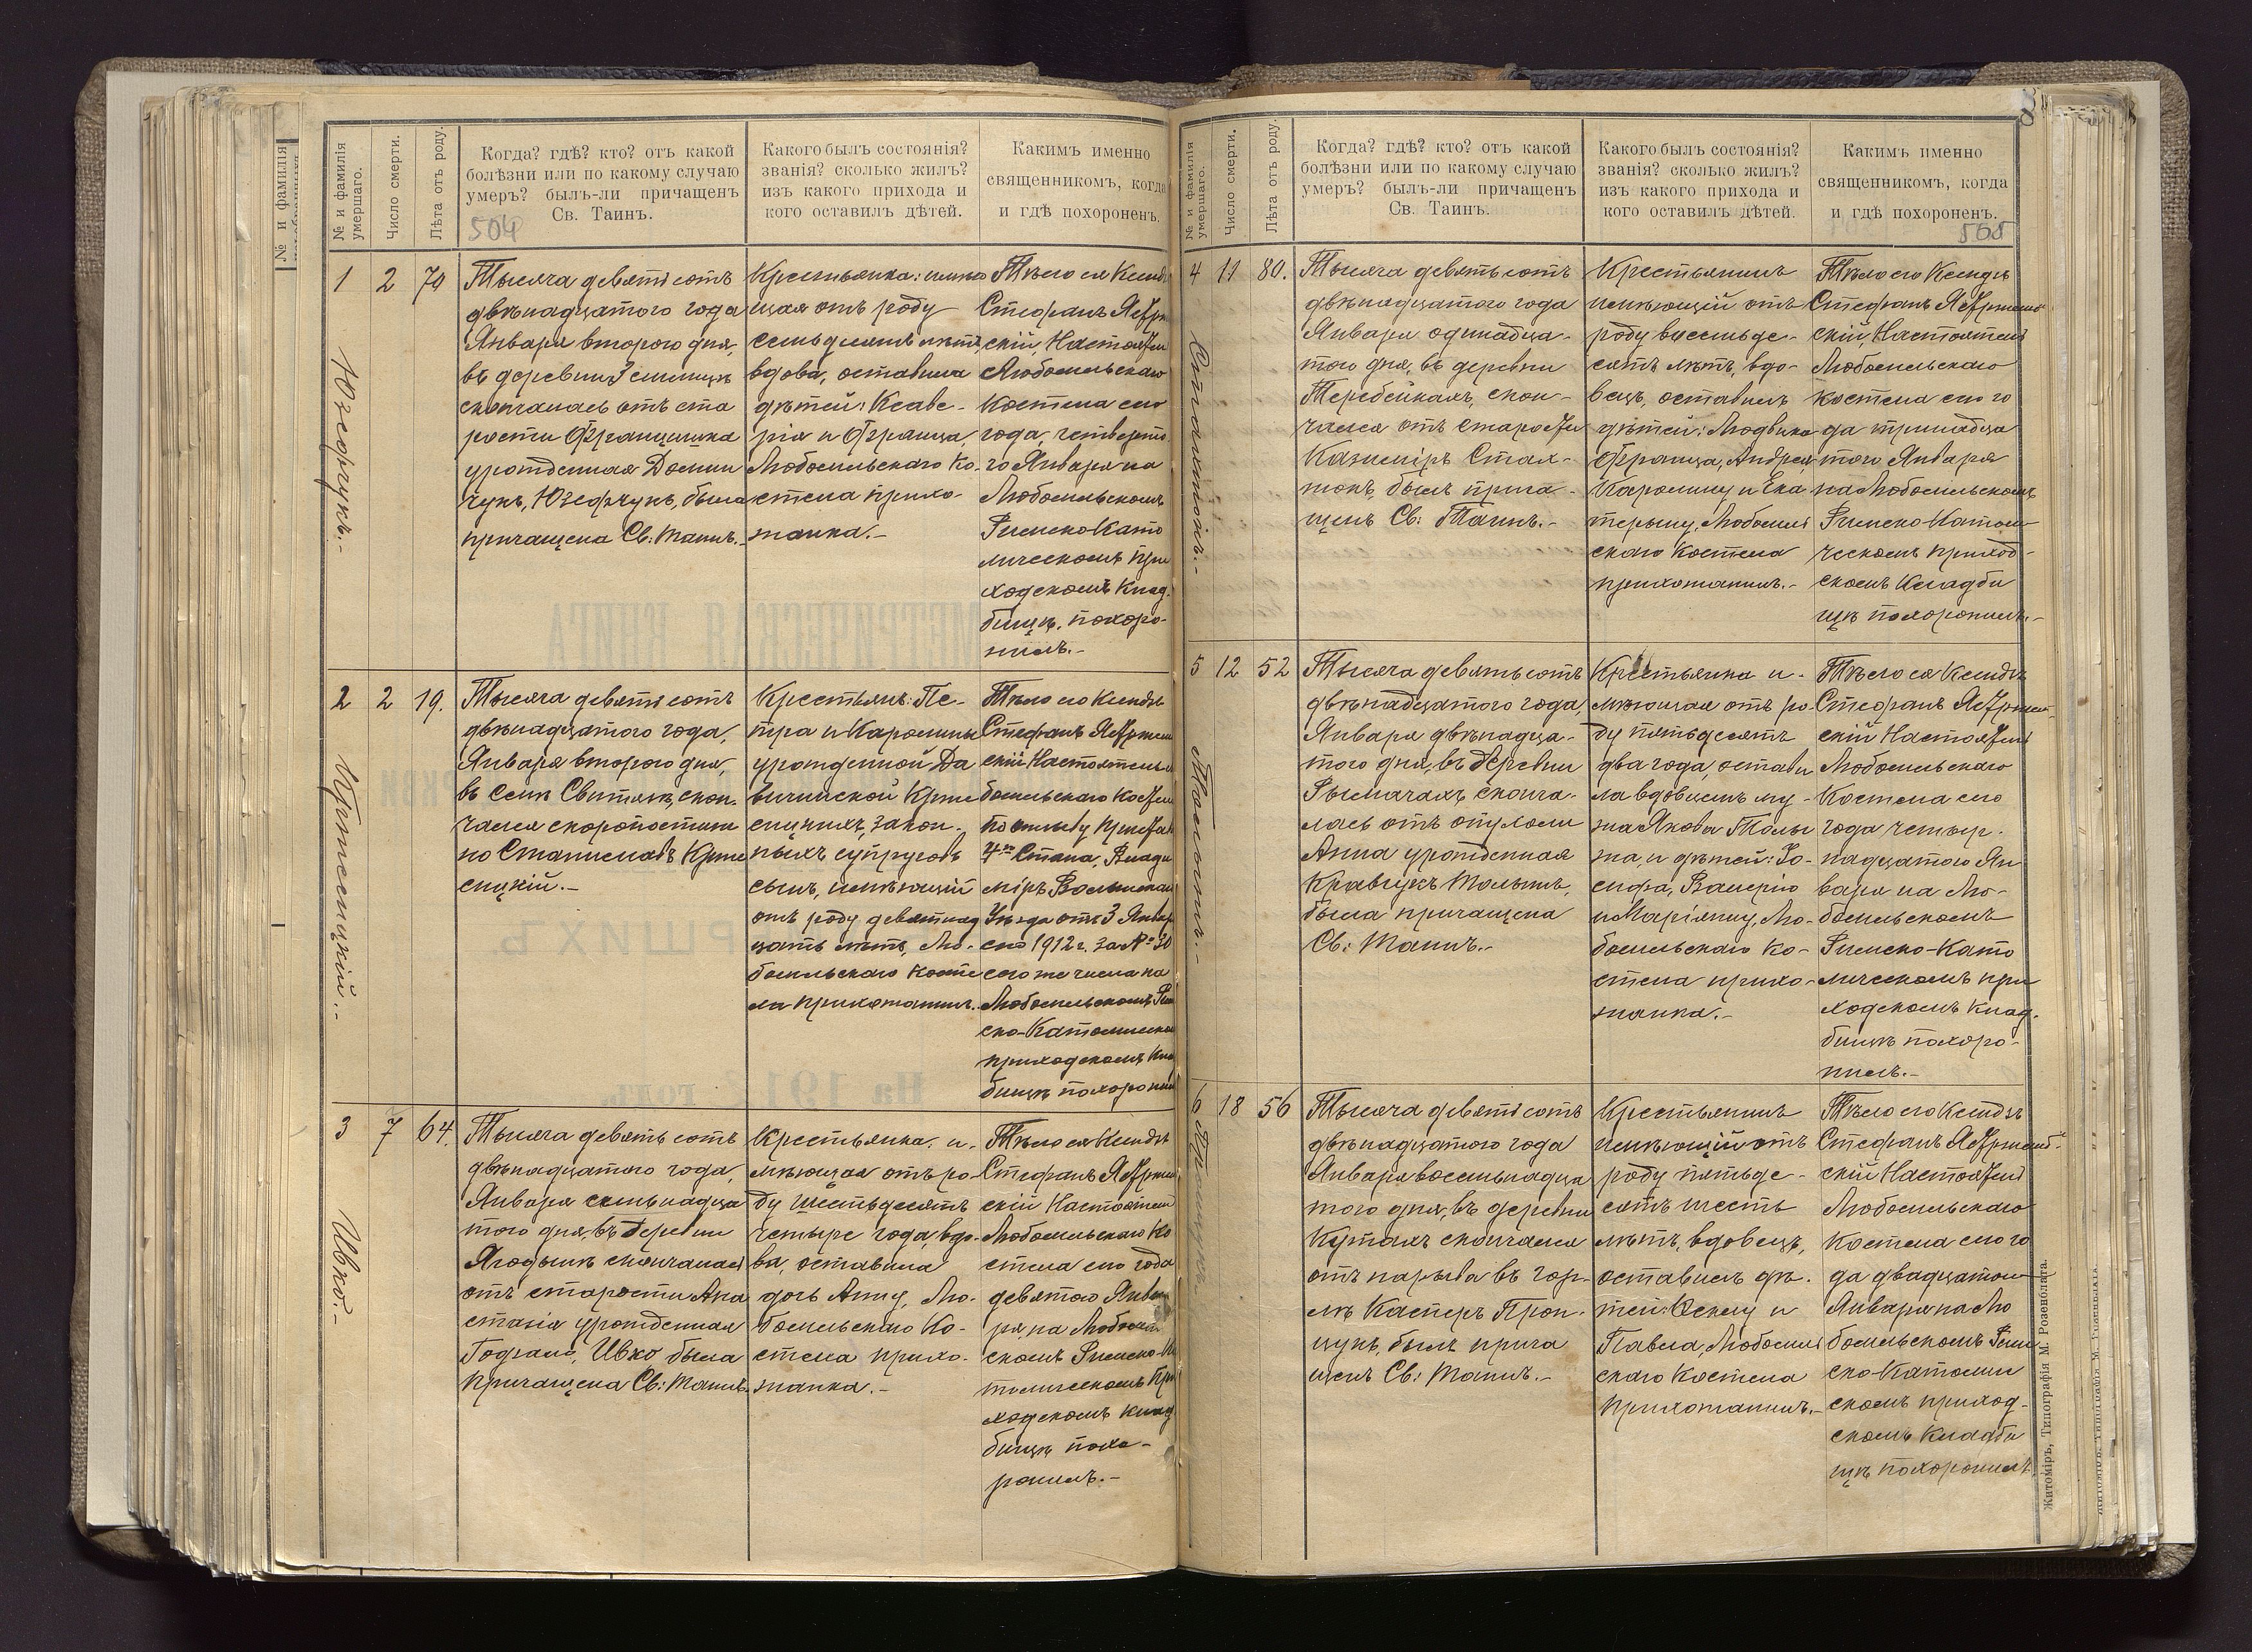 504
№ и фамилія умершаго.
Число смерти.
Лѣта отъ роду.
Когда? гдѣ? кто? отъ какой
болѣзни или по какому случаю
умеръ? былъ-ли причащенъ
Св. Таинъ.
Какого былъ состоянія?
званія? сколько жилъ?
изъ какого прихода и
кого оставилъ дѣтей.
Каким именно
священникомъ, когда
и гдѣ похороненъ.
1 2 70
Юзефчукъ.-
Тысяча девятьсотъ
двѣнадцатого года
Января второго дня,
въ деревни
скончалась отъ ста
рости Францишка
урожденная Домин
чукъ, Юзефчукъ, была
причащена Св: Таинъ.-
Крестьянка: имѣю
щая отъ роду
семьдесятъ лѣтъ,
вдова, оставила
дѣтей: Ксаве-
рія и Франца,
Любомльскаго ко-
стела прихо-
жанка.-
Тѣло ея Ксендзъ
Стефанъ
скій, Настоятель
Любомльскаго
Костела сего
года, четверто
го Января на
Любомльскомъ
Римско Като
лическомъ при
ходскомъ Клад-
бищѣ, похоро-
нилъ.-
2 2 19.
Кржесицкій.-
Тысяча девятьсотъ
двѣнадцатого года,
Января второго дня,
въ селѣ Свитязѣ, скон-
чался скоропостиж
но Станиславъ Крже
сицкій.-
Крестьянъ: Пе-
тра и Каролины
урожденной Да
вичинской Крже
сицкихъ, закон-
ныхъ супруговъ
сынъ, имѣющій
отъ роду девятнад
цать лѣтъ, Лю-
бомльскаго Косте
ла прихожанинъ.
Тѣло его Ксендзъ
Стефанъ
скій Настоятель
бомльскаго Костела
по отзыву Пристава
4го Стана, Влади
міръ Волынскаго
Уѣзда отъ 3 Января
сего 1912 г. за № 30
сего же числа на
Любомльскомъ Рим
ско-Католическомъ
приходскомъ Клад
бищѣ похоронилъ
3 7 64.
Ивко.-
Тысяча девятьсотъ
двѣнадцатого года,
Января семьнадца
того дня, въ деревни
Ягодынѣ скончалась
отъ старости Ана
стазія урожденная
Ивко, была
причащена Св: Таинъ.
Крестьянка: и-
мѣющая отъ ро-
ду шестьдесятъ
четыре года, вдо-
ва, оставила
дочь Анну, Лю-
бомльскаго Ко-
стела прихо-
жанка.-
Тѣло ея Ксендзъ
Стефанъ
скій Настоятель
Любомльскаго Ко
стела сего года
девятого Янва
ря на Любомль
скомъ Римско-Ка
толическомъ При
ходскомъ Клад
бищѣ похо-
ронилъ.-
505
№ и фамилія умершаго.
Число смерти.
Лѣта отъ роду.
Когда? гдѣ? кто? отъ какой
болѣзни или по какому случаю
умеръ? былъ-ли причащенъ
Св. Таинъ.
Какого былъ состоянія?
званія? сколько жилъ?
изъ какого прихода и
кого оставилъ дѣтей.
Каким именно
священникомъ, когда
и гдѣ похороненъ.
4 11 80.
Тысяча девятьсотъ
двѣнадцатого года
Января одинадца-
того дня, въ деревни
Теребейкахъ, скон-
чался отъ старости
Казиміръ
былъ прича-
щенъ Св: Таинъ.-
Крестьянинъ
имѣющій отъ
роду восемьде-
сятъ лѣтъ, вдо-
вецъ, оставилъ
дѣтей: Людвика
Франца, Андрея
Каролину и Ека
терыну, Любомль
скаго Костела
прихожанинъ.-
Тѣло его Ксендзъ
Стефанъ
скій, Настоятель
Любомльскаго
Костела сего го
да тринадца
того Января
на Любомльскомъ
Римско-Католи
ческомъ приход-
скомъ Кладби
щѣ похоронилъ.-
5 12 52
Тысяча девятьсотъ
двѣнадцатого года,
Января двѣнадца-
того дня, въ деревни
Рымачахъ сконча-
лась отъ опухоли
Анна урожденная
Кравчукъ
была причащена
Св: Таинъ.-
Крестьянка и-
мѣющая отъ ро-
ду пятьдесятъ
два года, остави
ла вдовцемъ му-
жа Якова
и дѣтей: Іо-
сифа, Валерію
и Маріянну, Лю-
бомльскаго Ко-
стела прихо-
жанка.-
Тѣло ея Ксендзъ
Стефанъ
скій Настоятель
Любомльскаго
Костела сего
года четыр-
надцатого Ян
варя на Лю-
бомльскомъ
Римско-Като
лическомъ при
ходскомъ Клад-
бищѣ похоро-
нилъ.-
6 18 56
Тысяча девятьсотъ
двѣнадцатого года
Января восемьнадца
того дня, въ деревни
Кутахъ скончался
отъ нарыва въ гор-
лѣ Касперъ Прон-
чукъ, былъ прича
щенъ Св: Таинъ.-
Крестьянинъ
имѣющій отъ
роду пятьде-
сятъ шесть
лѣтъ, вдовецъ,
оставилъ дѣ-
тей: и
Павла, Любомль
скаго Костела
прихожанинъ.-
Тѣло его Ксендзъ
Стефанъ
скій Настоятель
Любомльскаго
Костела сего го
да двадцатого
Января на Лю
бомльскомъ Рим
ско-Католи
скомъ приход-
скомъ Кладби
щѣ похоронилъ
Житоміръ, Типографія М. Розенблата.